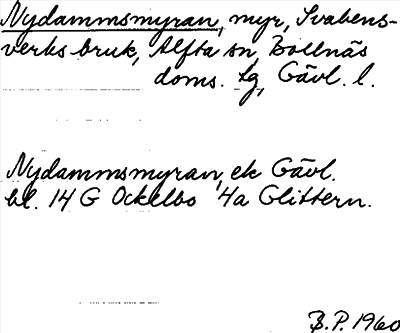 Nydammsmyran, myr, Svabens-
verks bruk, Alfta sn, Bollnäs
doms. tg, Gävl. l.
Nydammsmyran, ek Gävl.
bl. 14 G Ockelbo 4a Glittern.
B.P. 1960